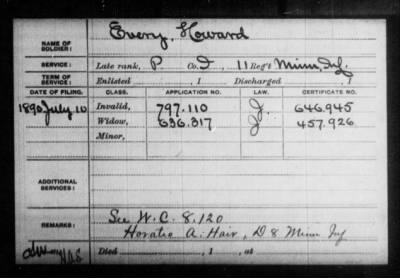 Every, Howard
NAME OF SOLDIER:
SERVICE: Late rank, P Co. I, 11 Reg't Minn. Inf.
TERM OF SERVICE: Enlisted , 1 Discharged , 1
DATE OF FILING. CLASS. APPLICATION NO. LAW. CERTIFICATE NO.
1890 July 10 Invalid, 797.110 J. 646.945
Widow, 636.317 J 457.926
Minor,
ADDITIONAL SERVICES:
See W.C. 8.120
REMARKS: Horatio A. Hair, D 8 Minn Inf
Died , 1 , at